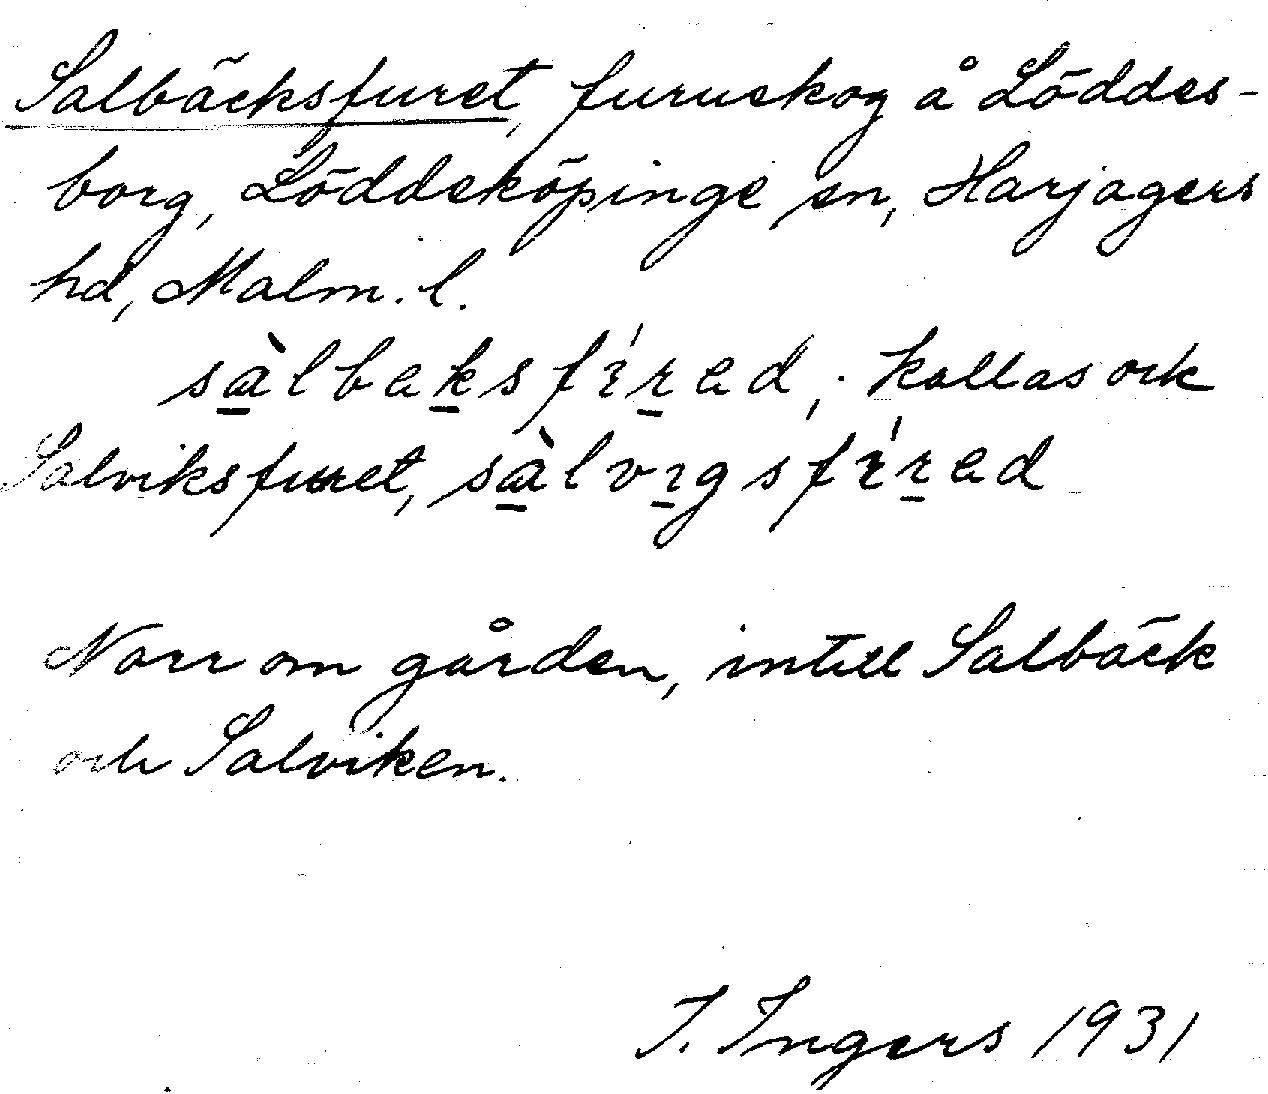 Salbäcksfuret, furuskog å Löddes-
borg, Löddeköpinge sn, Harjagers
hd, Malm. l.
sàlbaksfírad; kallas ock
Salviksfuret, sàlvıgsfírad
Norr om gården, intill Salbäck
och Salviken.
I. Ingers 1931